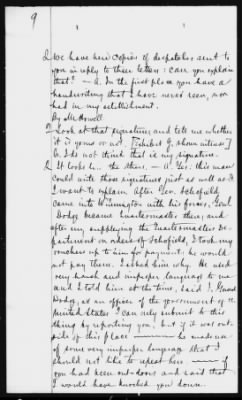 9
Q We have here copies of despatches sent to
you in reply to these letters: can you explain
that? — A. In the first place you have a
handwriting that I have never seen, nor
had in my establishment.
By Mr Howell
Q Look at that signature, and tell me whether
it is yours or not [Exhibit G. shown witness]
A. I do not think that is my signature.
Q It looks like the others. — A. Yes. This man
could write those signatures just as well as I.
I want to explain. After Gen. Schofield
came into Wilmington with his forces, Genl
Dodge became Quartermaster there; and
after my supplying the Quartermaster De-
partment on orders of Schofield, I took my
vouchers up to him for payment: he would
not pay them. I asked him why. He used
very harsh and improper language to me
and I told him at the time, said I, "General
Dodge, as an officer of the government of the
United States I can only submit to this
thing by reporting you, but if it was out-
side of this place — he made use
of some very improper language that I
should not like to repeat here — if
you had been out doors and said that
I would have knocked you down.